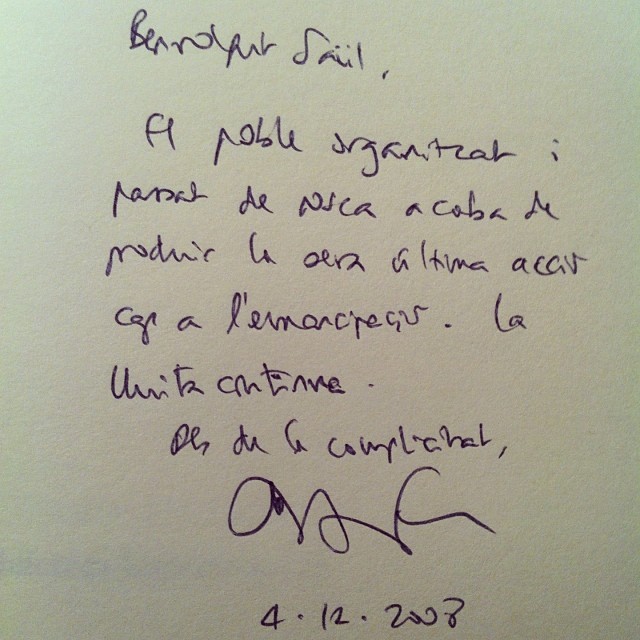 Benvolgut Saül,
El poble organitzat i
passat de rosca acaba de
produir la seva última acció
cap a l'emancipació. La
lluita continua.
Des de la complicitat,
4.12.2008